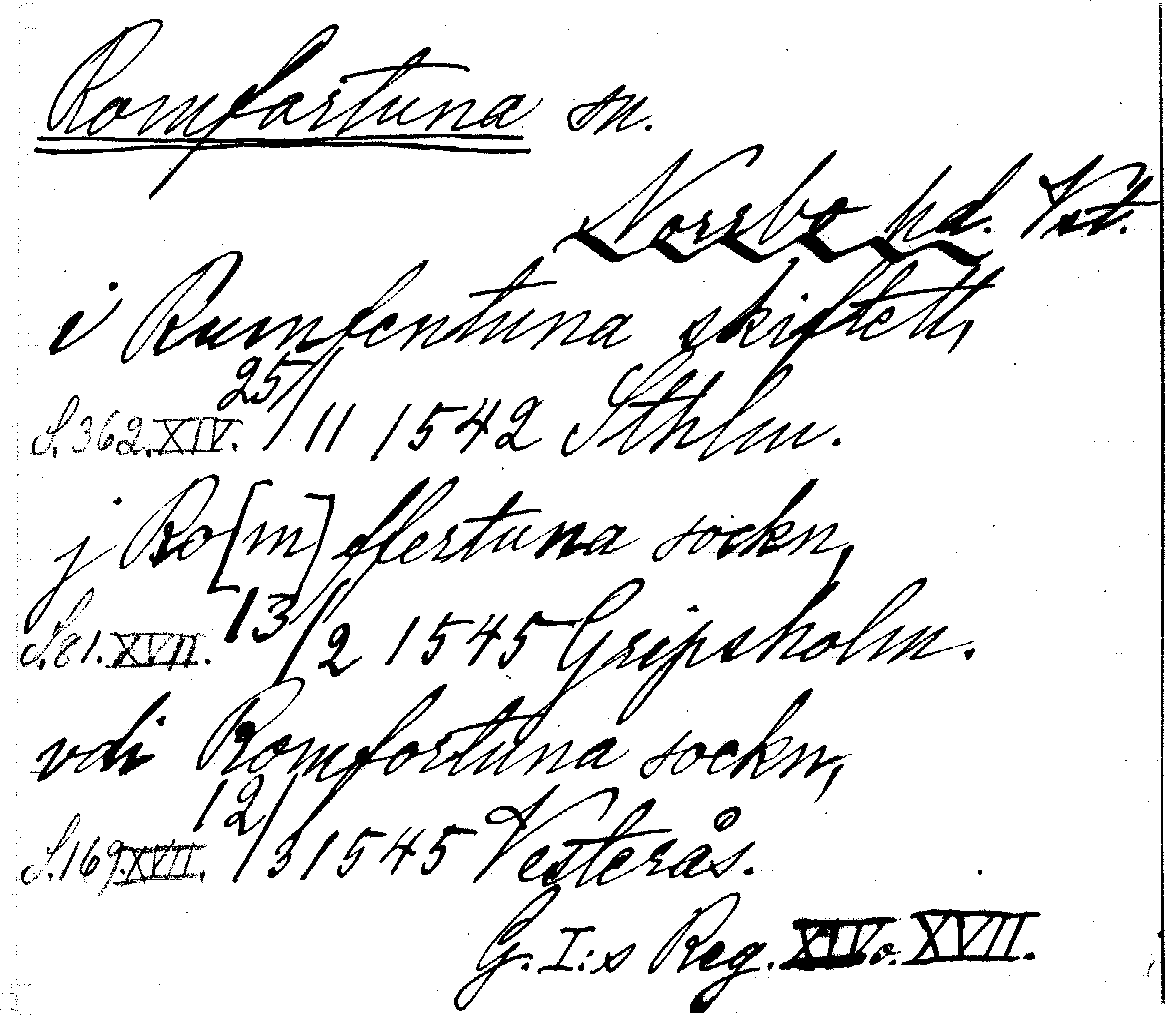 Romfartuna sn.
Norrbo hd. Vst.
i Rumfentuna skiftett,
S. 362. XIV. 25/11 1542 Sthlm.
j Ro[m]ffertuna sockn,
S. 81. XVII. 13/2 1545 Gripsholm.
vdi Romfortuna sockn,
S. 169. XVII. 12/3 1545 Vesterås.
G. I:s Reg. XIV o. XVII.